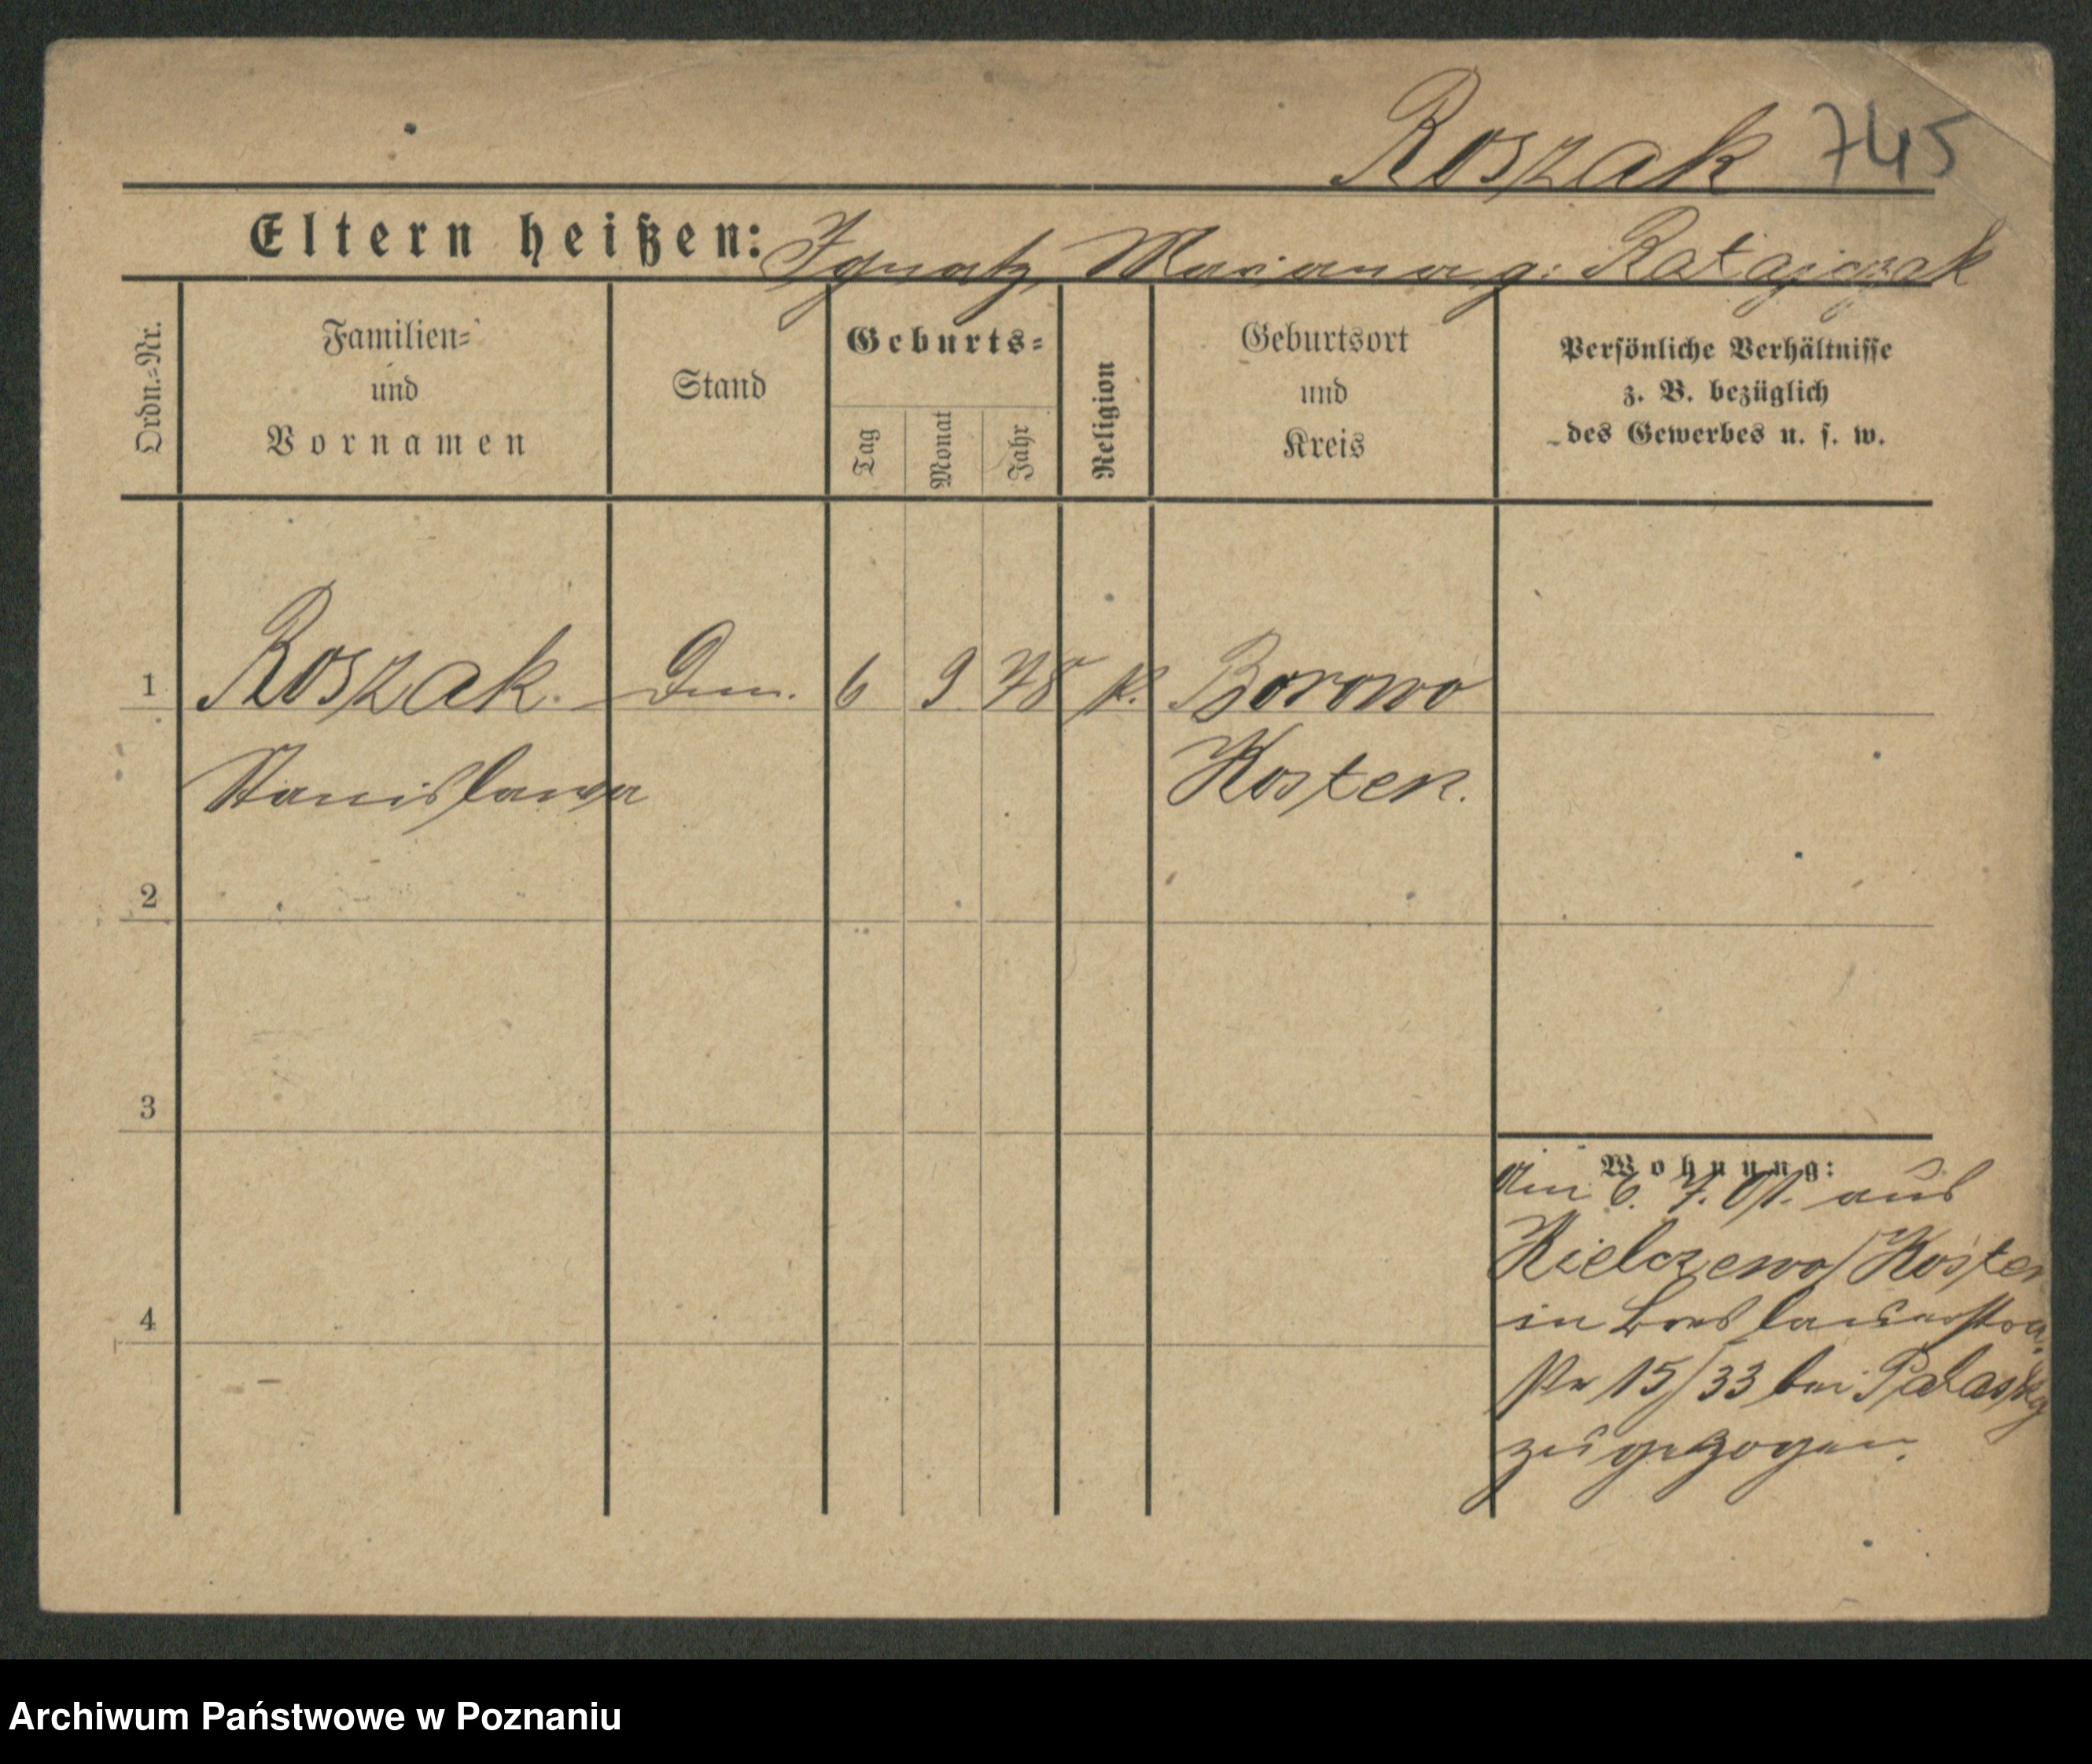 Roszak 745
Eltern heißen: Ignatz, Mariana g: Ratajczak
Ordn.=Nr.
Familien=
und
Vornamen
Stand
Geburts=
Tag
Monat
Jahr
Religion
Geburtsort
und
Kreis
Persönliche Verhältnisse
z. B. bezüglich
des Gewerbes u. s. w.
1 Roszak. 6 9 78 k. Borowo
Stanislawa Kosten.
2
3
4
Wohnung:
Am 6. 7. 01. aus
Kielczewo/Kosten
in Breslauerstra.
Nr 15/33 bei
zugezogen.
Archiwum Państwowe w Poznaniu